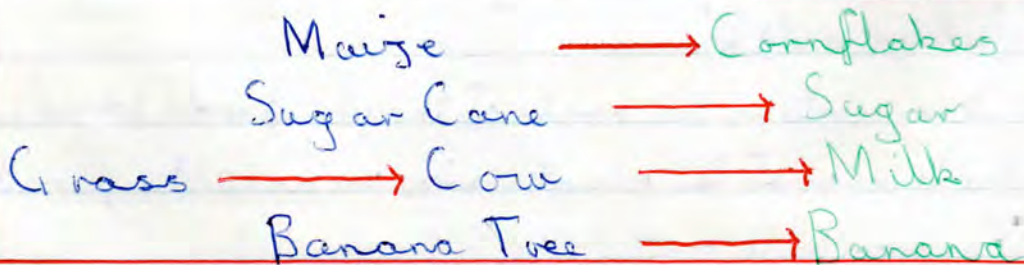 Maize → Cornflakes
Sugar Cane → Sugar
Grass → Cow → Milk
Banana Tree → Banana